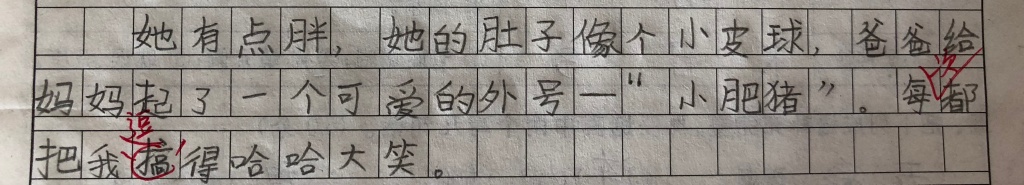 她有点胖，她的肚子像个小皮球，爸爸给
妈妈起了一个可爱的外号—“小肥猪”。每次都
把我搞逗得哈哈大笑。